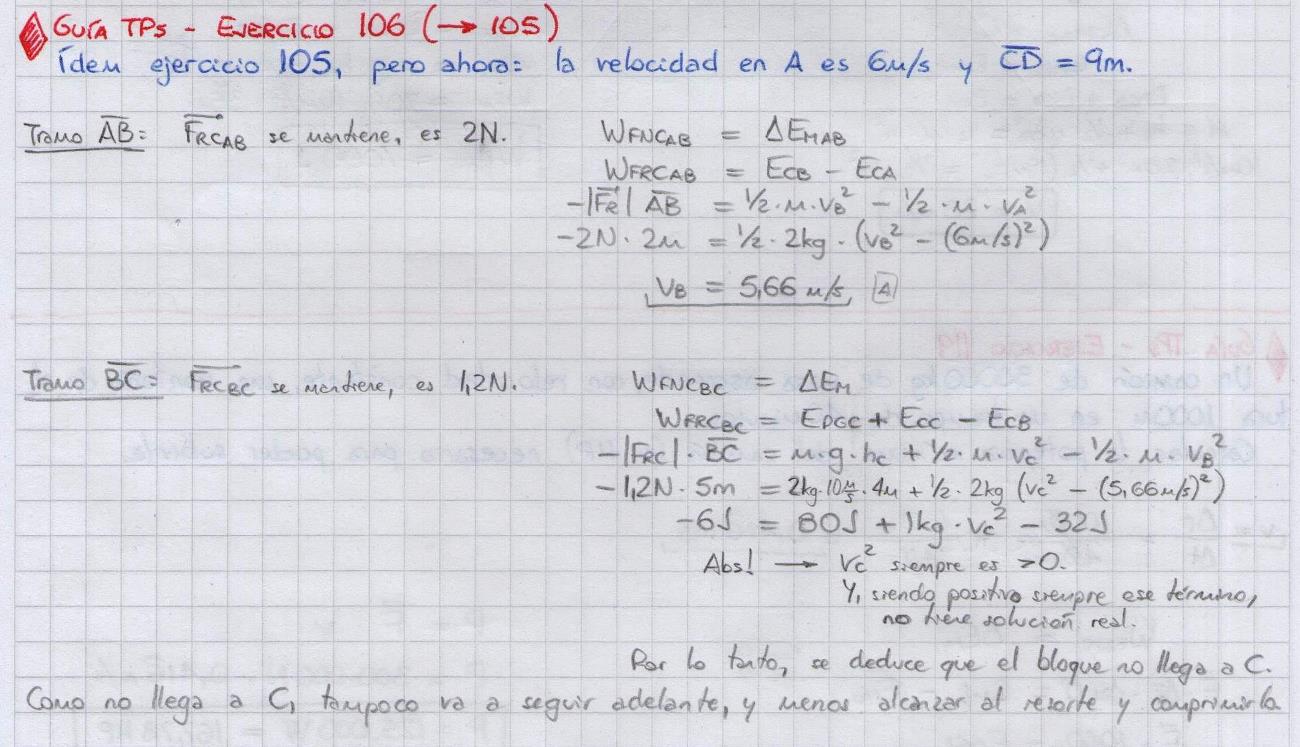 GUÍA TPs - EJERCICIO 106 (→ 105)
Ídem ejercicio 105, pero ahora: la velocidad en A es 6m/s y CD = 9m.
Tramo AB: FRCAB se mantiene, es 2N. WFNCAB = ΔEMAB
WFRCAB = ECB - ECA
-|FR| AB = 1/2·m·VB² - 1/2·m·VA²
-2N·2m = 1/2·2kg·(VB² - (6m/s)²)
VB = 5,66 m/s A
Tramo BC: FRCBC se mantiene, es 1,2N. WFNCBC = ΔEM
WFRCBC = EPGC + ECC - ECB
-|FRC|·BC = m·g·hC + 1/2·m·VC² - 1/2·m·VB²
-1,2N·5m = 2kg·10m/s·4m + 1/2·2kg (VC² - (5,66m/s)²)
-6J = 80J + 1kg·VC² - 32J
Abs! → VC² siempre es >0.
Y, siendo positivo siempre ese término,
no tiene solución real.
Por lo tanto, se deduce que el bloque no llega a C.
Como no llega a C, tampoco va a seguir adelante, y menos alcanzar al resorte y comprimirlo